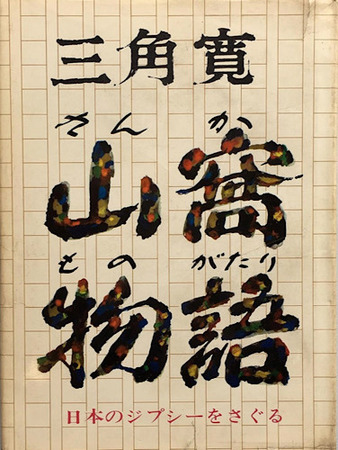 三角寛
さんか
山窩
ものがたり
物語
日本のジプシーをさぐる